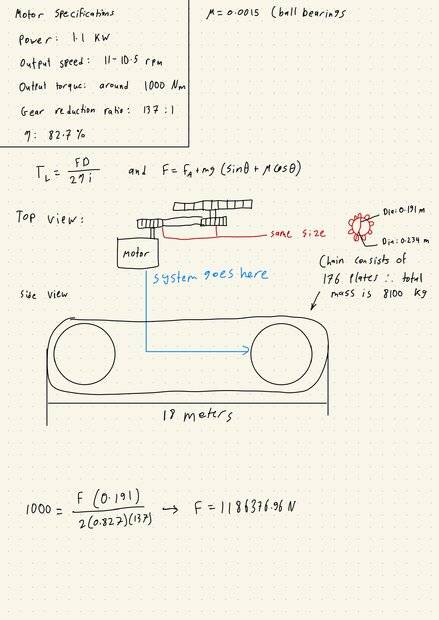 Motor Specifications
μ = 0.0015 (ball bearings
Power: 1.1 KW
Output speed: 11-10.5 rpm
Output torque: around 1000 Nm
Gear reduction ratio: 137 : 1
η: 82.7 %
T_L = FD / 2ηi and F = F_A + mg (sinθ + μcosθ)
TOP view:
same size
Dia: 0.191 m
Dia: 0.234 m
Motor
system goes here
Chain consists of
176 plates ∴ total
mass is 8100 kg
side view
18 meters
1000 = F (0.191) / 2(0.827)(137) → F = 1186376.96 N